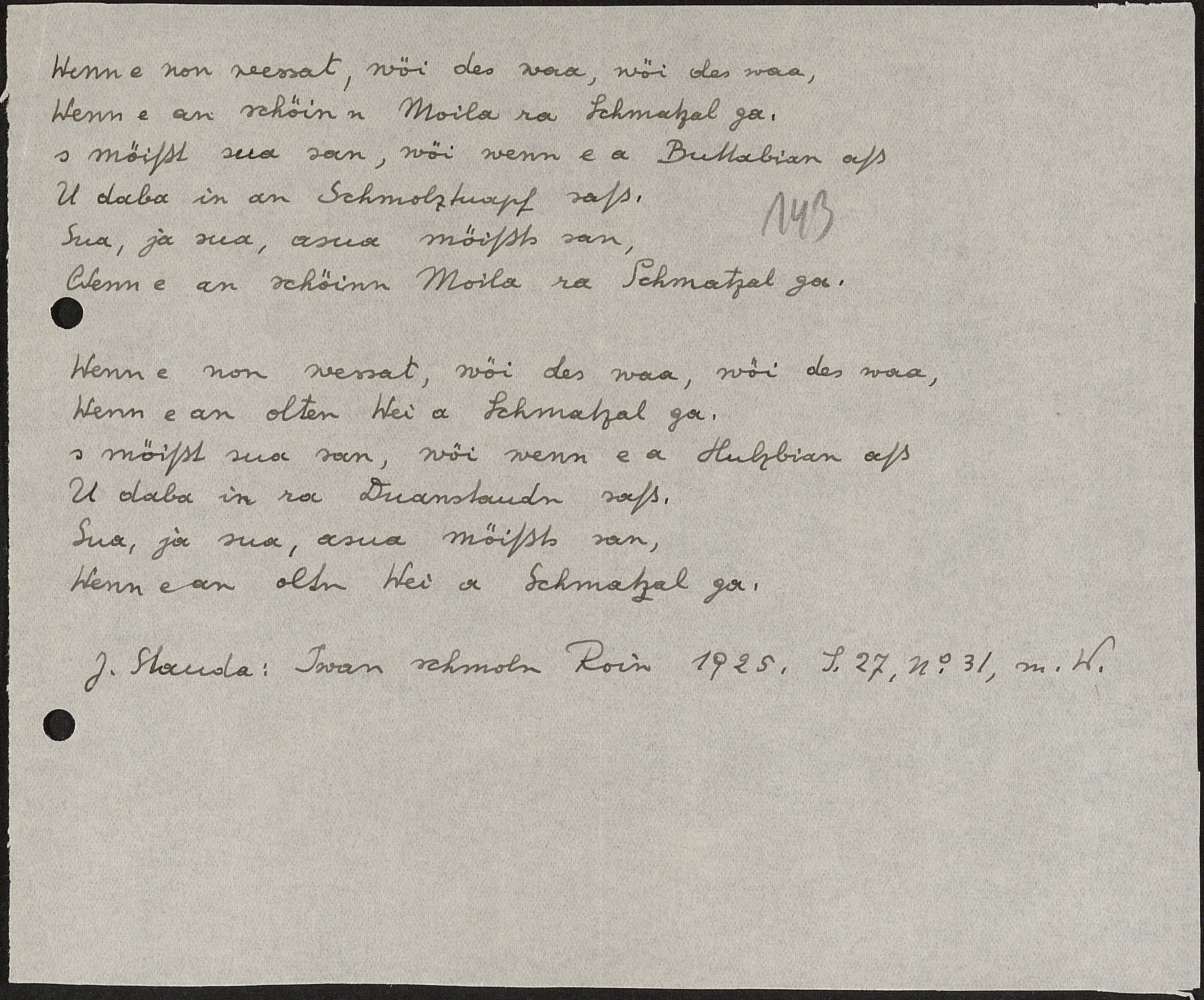 Wenn e non wessat, wöi des waa, wöi des waa,
Wenn e an schöin n Moila ra Schmatzal ga.
s möißt sua san, wöi wenn e a Buttabian aß
U daba in an Schmolztuapf saß.
143
Sua, ja sua, asua möißts san,
Wenn e an schöinn Moila ra Schmatzal ga.
Wenn e non wessat, wöi des waa, wöi des waa,
Wenn e an olten Wei a Schmatzal ga.
s möißt sua san, wöi wenn e a Hulzbian aß
U daba in ra Duanstaudn saß.
Sua, ja sua, asua möißts san,
Wenn e an oltn Wei a Schmatzal ga.
J. Stauda: Iwan schmoln Roin 1925. S. 27, No. 31, m. W.